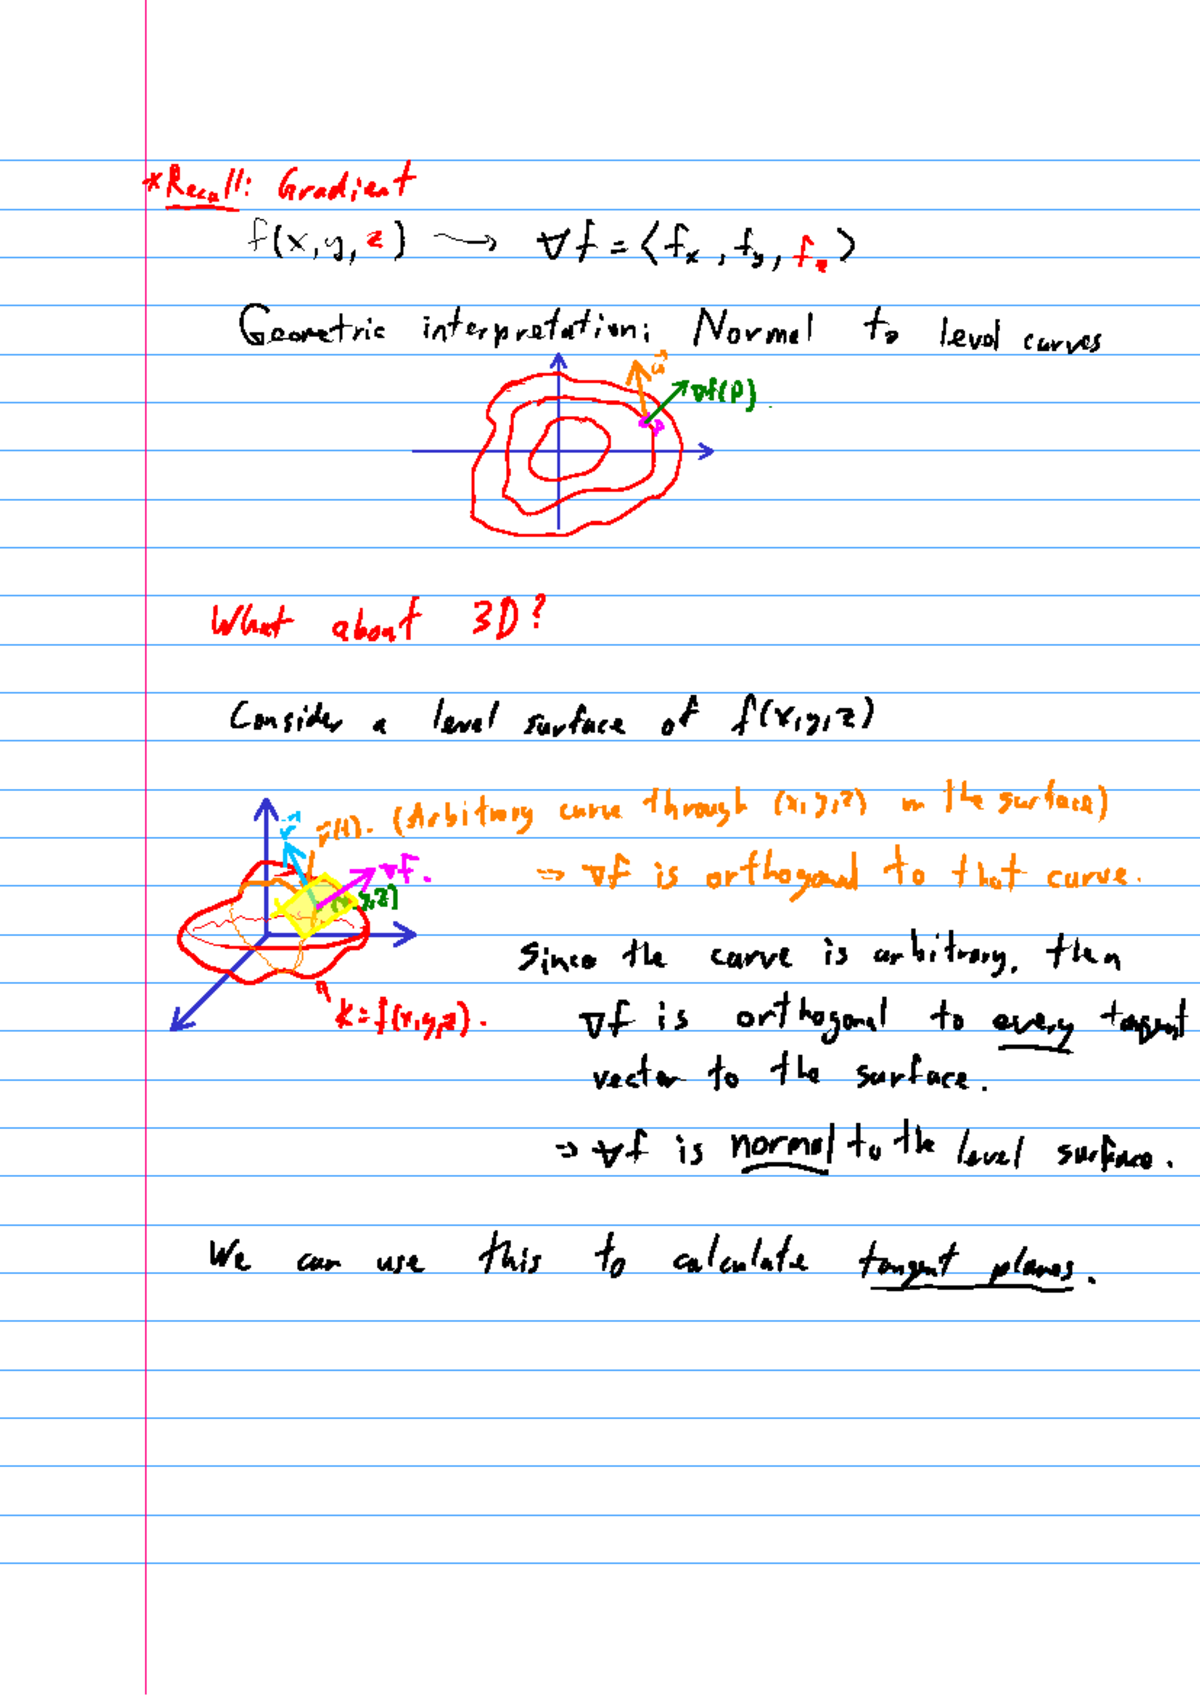 *Recall: Gradient
f(x,y,z) → ∇f = ⟨fx, fy, fz⟩
Geometric interpretation: Normal to level curves
u⃗
∇f(P).
P
What about 3D?
Consider a level surface of f(x,y,z)
r⃗(t). (Arbitrary curve through (x,y,z) on the surface)
∇f.
⇒ ∇f is orthogonal to that curve.
(x,y,z)
Since the curve is arbitrary, then
k=f(x,y,z).
∇f is orthogonal to every tangent
vector to the surface.
⇒ ∇f is normal to the level surface.
We can use this to calculate tangent planes.